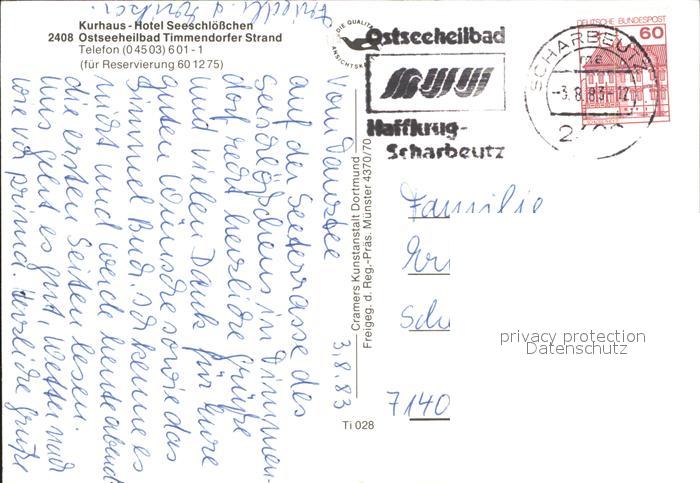 Kurhaus - Hotel Seeschlößchen
2408 Ostseeheilbad Timmendorfer Strand
Telefon (0 45 03) 6 01 - 1
(für Reservierung 60 12 75)
DIE QUALITÄTS
ANSICHTSKARTE
Ostseeheilbad
Haffkrug-
Scharbeutz
SCHARBEUTZ
-3.8.83-12
DEUTSCHE BUNDESPOST
60
3.8.83
Vom
auf der Seeterrasse des
Seeschlößchens in Timmen-
dorf recht herzliche Grüße
und vielen Dank für Eure
guten Wünsche sowie das
Simmel Buch. Ich kenne es
nicht und werde heute abend
die ersten Seiten lesen.
Uns geht es gut, Wetter nach
wie vor prima. Herzliche Grüße
Cramers Kunstanstalt Dortmund
Freigeg. d. Reg.-Präs. Münster 4370/70
Ti 028
Familie
Sch
7140
privacy protection
Datenschutz